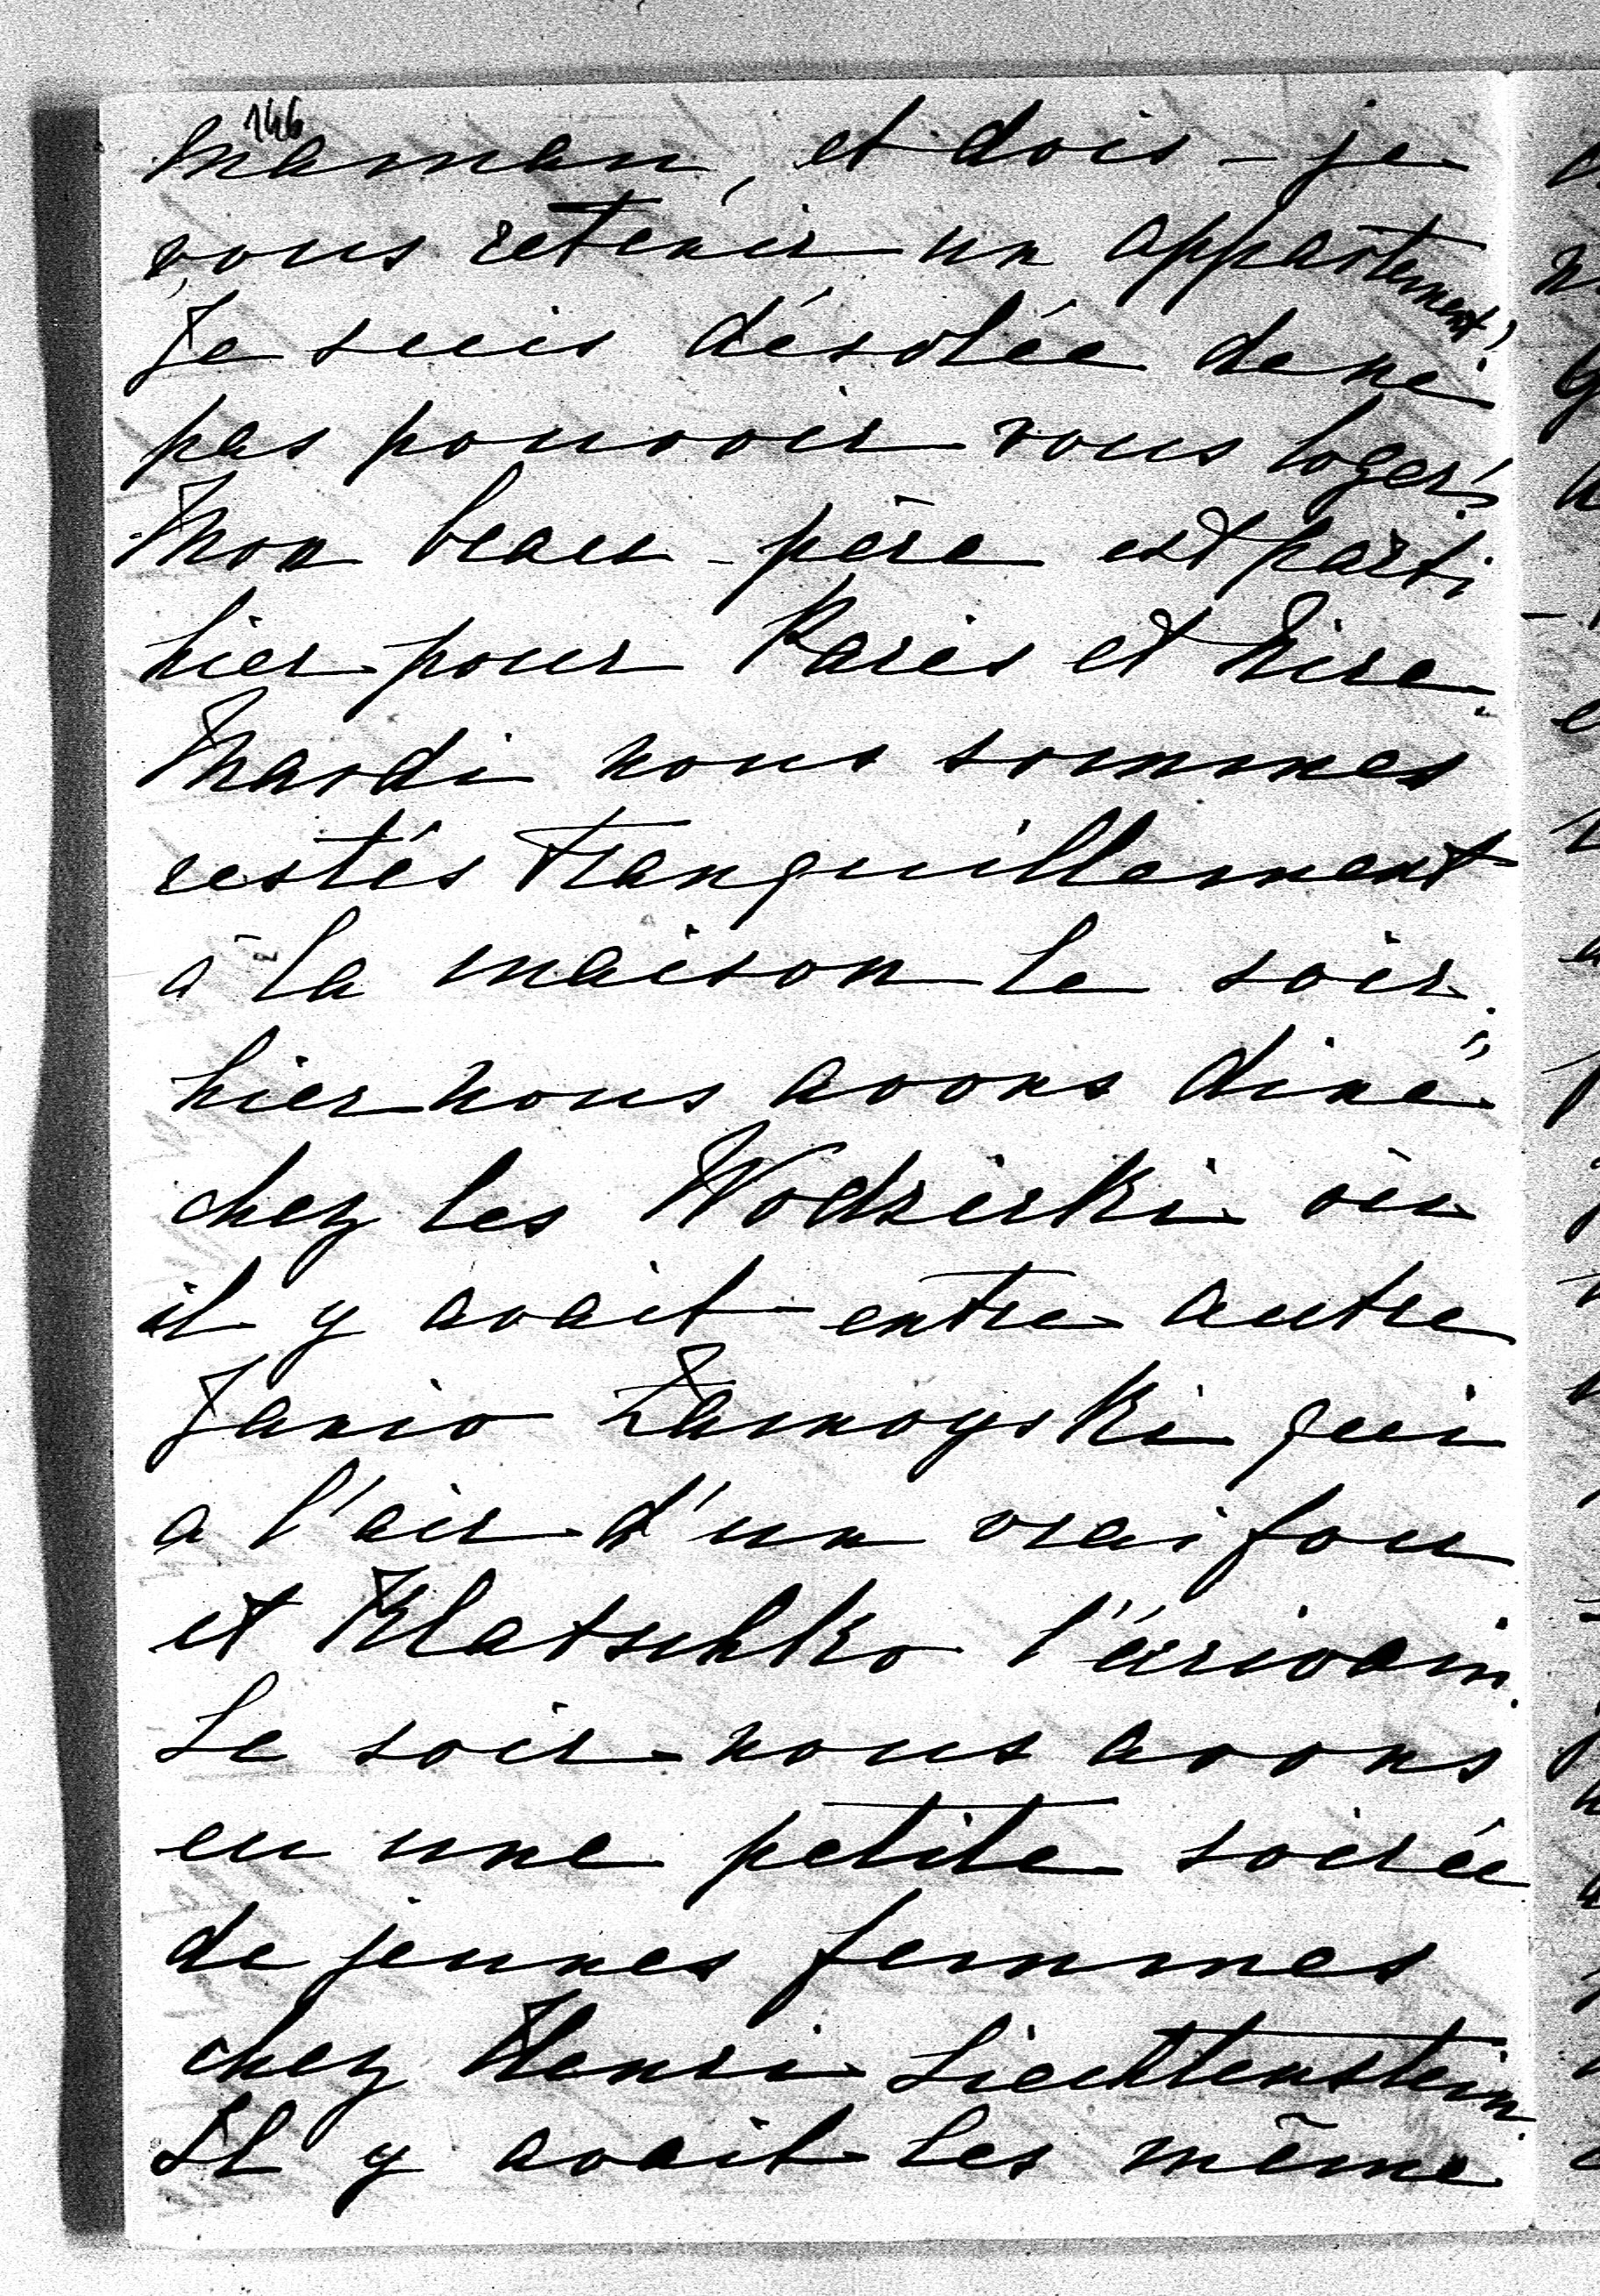 146
maman, et dois-je
vous retenir un appartement?
Je suis désolée de ne
pas pouvoir vous loger!
Mon beau-père est parti
hier pour Paris et Nice.
Mardi nous sommes
restés tranquillement
à la maison le soir.
hier nous avons diné
chez les Wodzicki où
il y avait entre autre
Janio Zamoyski qui
a l'air d'un vrai fou
et Klatschko l'écrivain.
Le soir nous avons
eu une petite soirée
de jeunes femmes
chez Henri Liechtenstein.
Il y avait les même